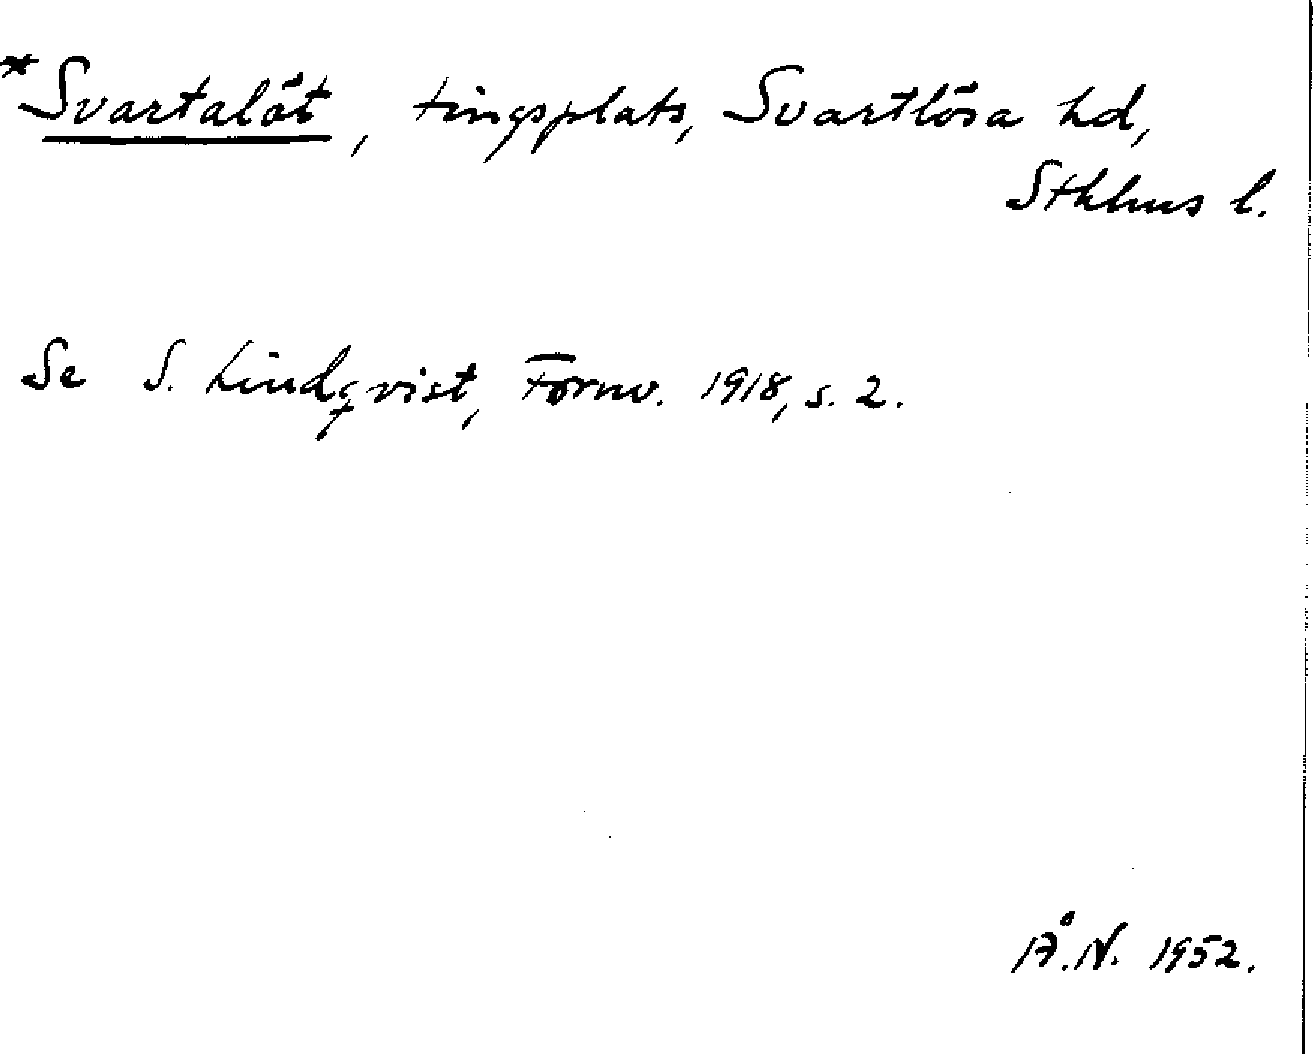 *Svartalöt, tingsplats, Svartlösa hd,
Sthlms l.
Se S. Lindqvist, Fornv. 1918, s. 2.
Å.N. 1952.